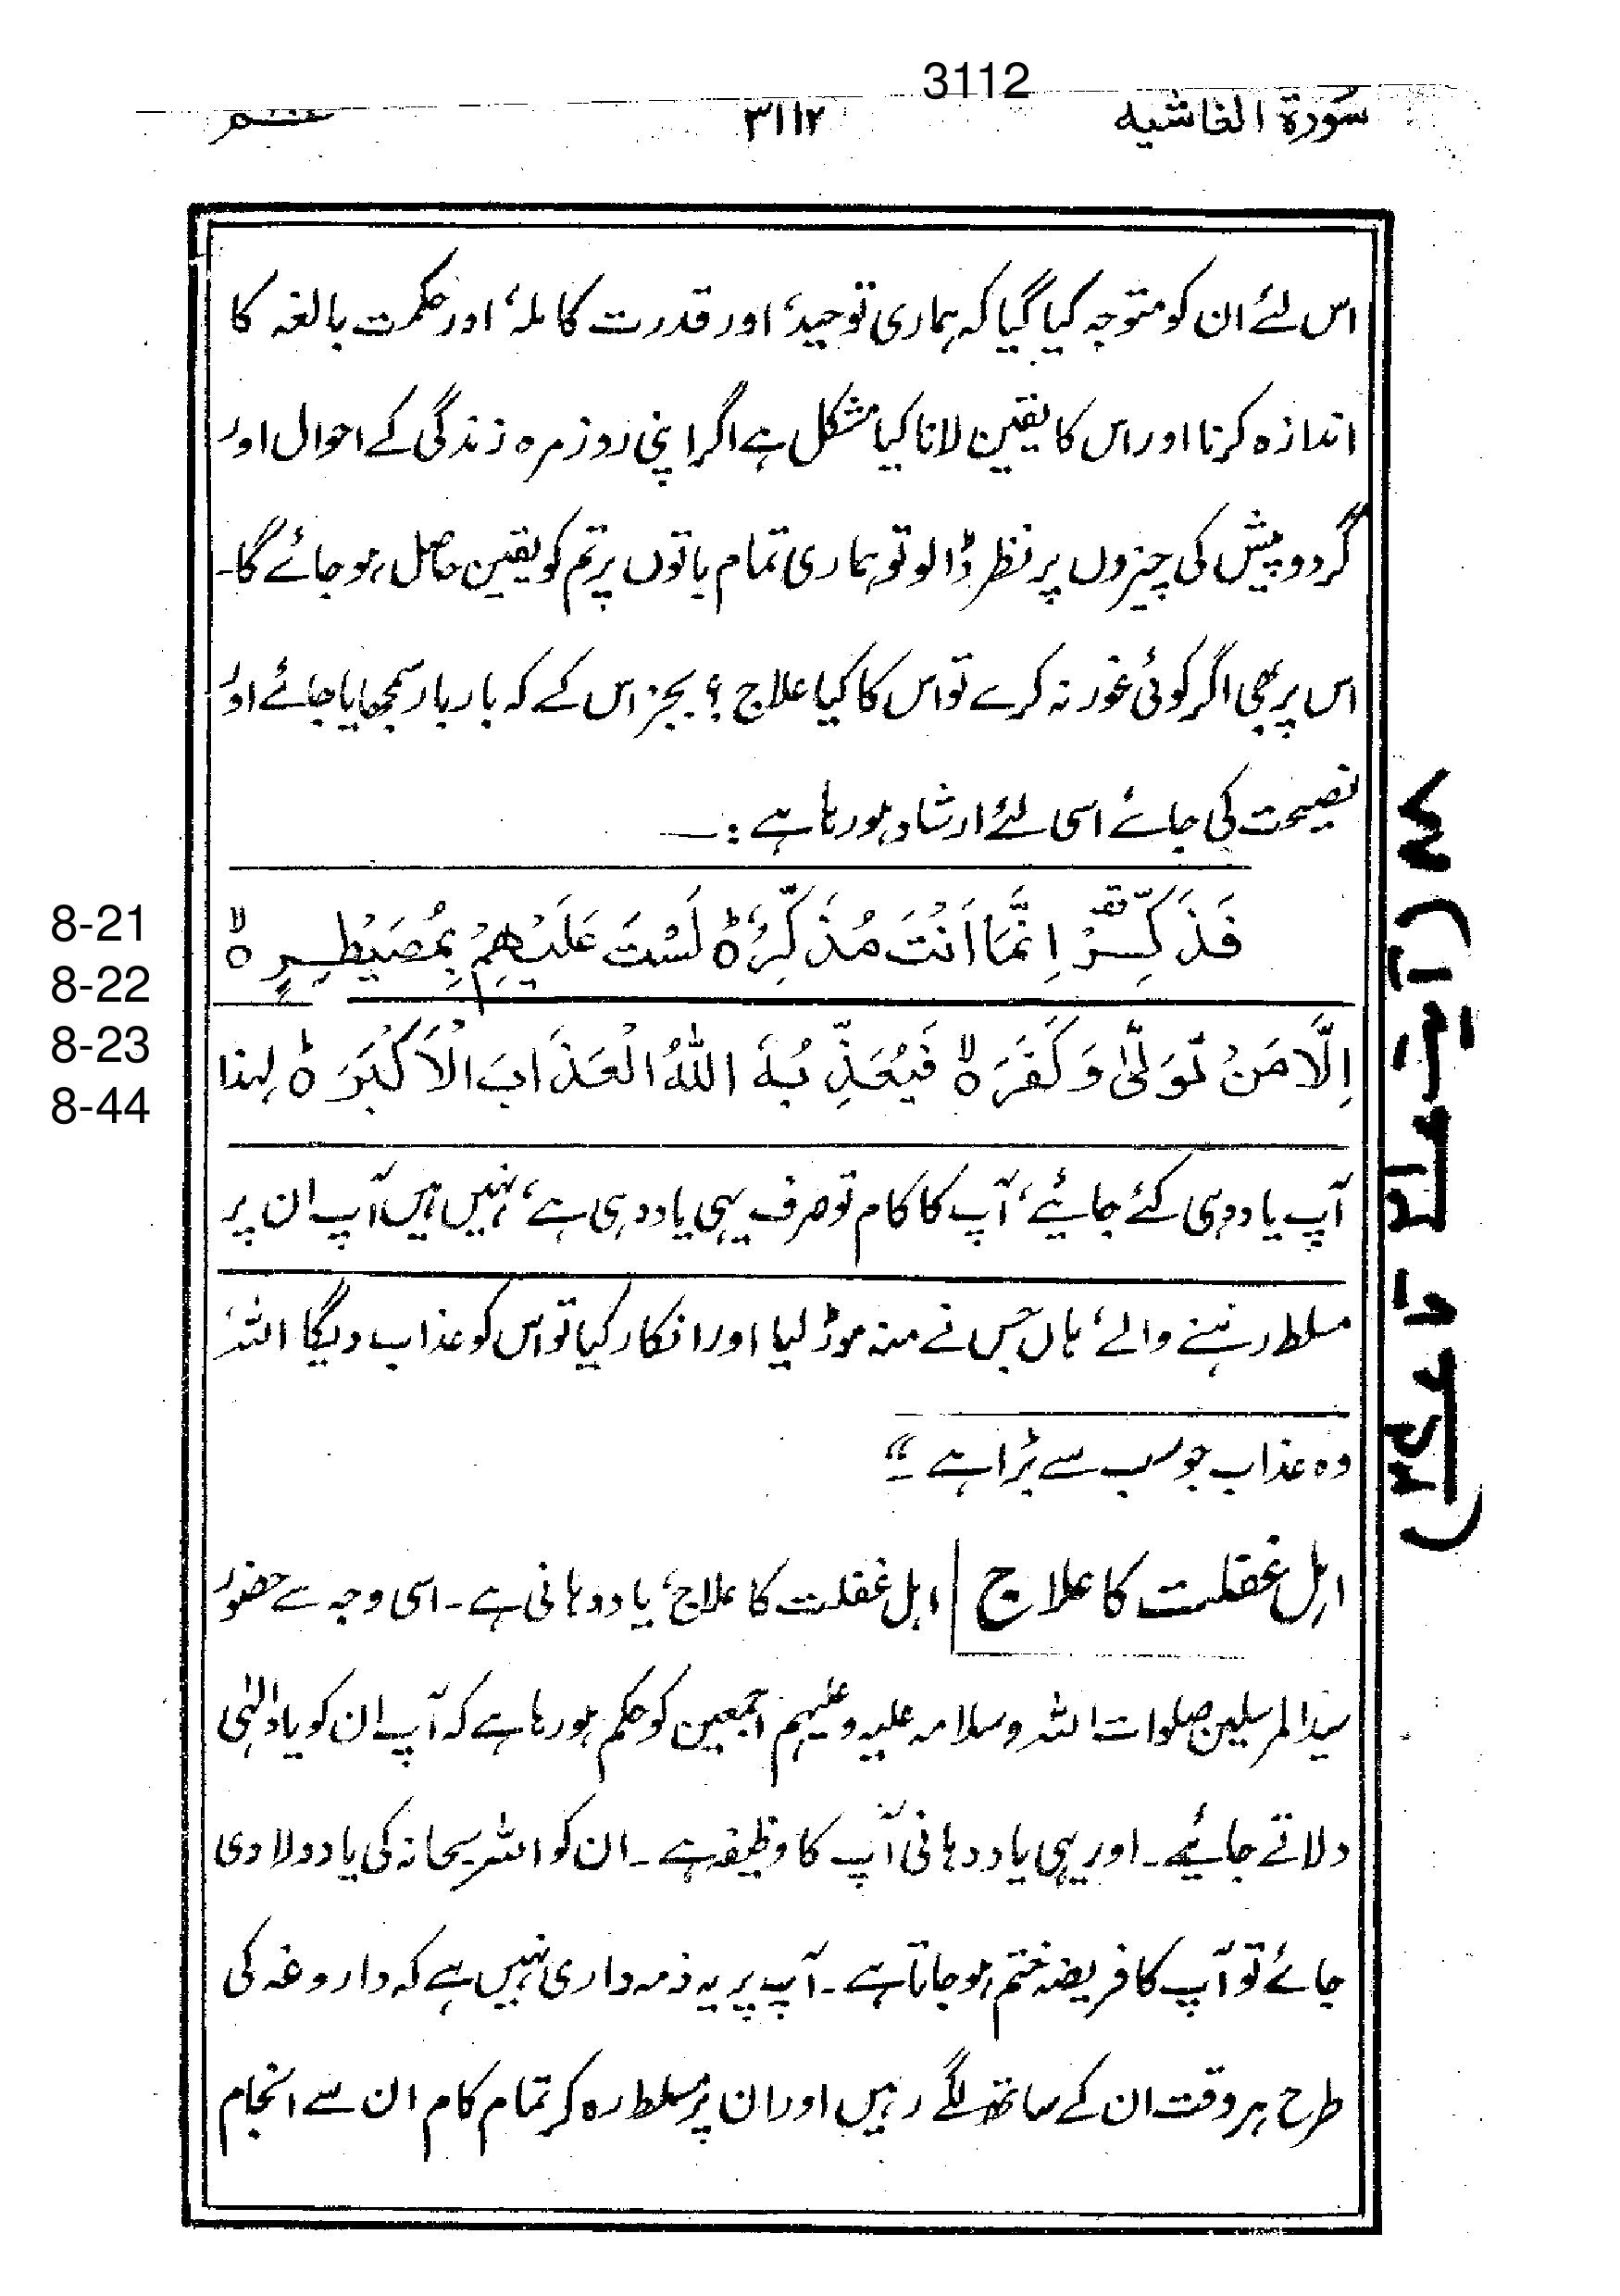 3112
سُورۃ الغاشیہ ۳۱۱۲ عــم
اس لئے ان کو متوجہ کیا گیا کہ ہماری توحید، اور قدرت کاملہ، اور حکمت بالغہ کا
اندازہ کرنا اور اس کا یقین لانا کیا مشکل ہے اگر اپنی روزمرہ زندگی کے احوال اور
گردوپیش کی چیزوں پر نظر ڈالو تو ہماری تمام باتوں پر تم کو یقین حاصل ہو جائے گا۔
اس پر بھی اگر کوئی غور نہ کرے تو اس کا کیا علاج ؟ بجز اس کے کہ بار بار سمجھایا جائے اور
نصیحت کی جائے اسی لئے ارشاد ہو رہا ہے :ــ
فَذَكِّرْ اِنَّمَا اَنْتَ مُذَكِّرٌ ؕ لَسْتَ عَلَيْهِمْ بِمُصَيْطِرٍ ۙ
اِلَّا مَنْ تَوَلّٰى وَكَفَرَ ۙ فَيُعَذِّبُهُ اللّٰهُ الْعَذَابَ الْاَكْبَرَ ؕ لہذا
آپ یاددہی کئے جائیے، آپ کا کام تو صرف یہی یاددہی ہے، نہیں ہیں آپ ان پر
مسلط رہنے والے، ہاں جس نے منہ موڑ لیا اور انکار کیا تو اس کو عذاب دیگا اللہ
وہ عذاب جو سب سے بڑا ہے ۔“
اہل غفلت کا علاج اہل غفلت کا علاج، یاددہانی ہے ۔ اسی وجہ سے حضور
سید المرسلین صلوات اللہ وسلامہ علیہ وعلیہم اجمعین کو حکم ہو رہا ہے کہ آپ ان کو یاد الٰہی
دلاتے جائیے ۔ اور یہی یاددہانی آپ کا وظیفہ ہے ۔ ان کو اللہ سبحانہ کی یاد دلا دی
جائے تو آپ کا فریضہ ختم ہو جاتا ہے ۔ آپ پر یہ ذمہ داری نہیں ہے کہ داروغہ کی
طرح ہر وقت ان کے ساتھ لگے رہیں اور ان پر مسلط رہ کر تمام کام ان سے انجام
8-21
8-22
8-23
8-44